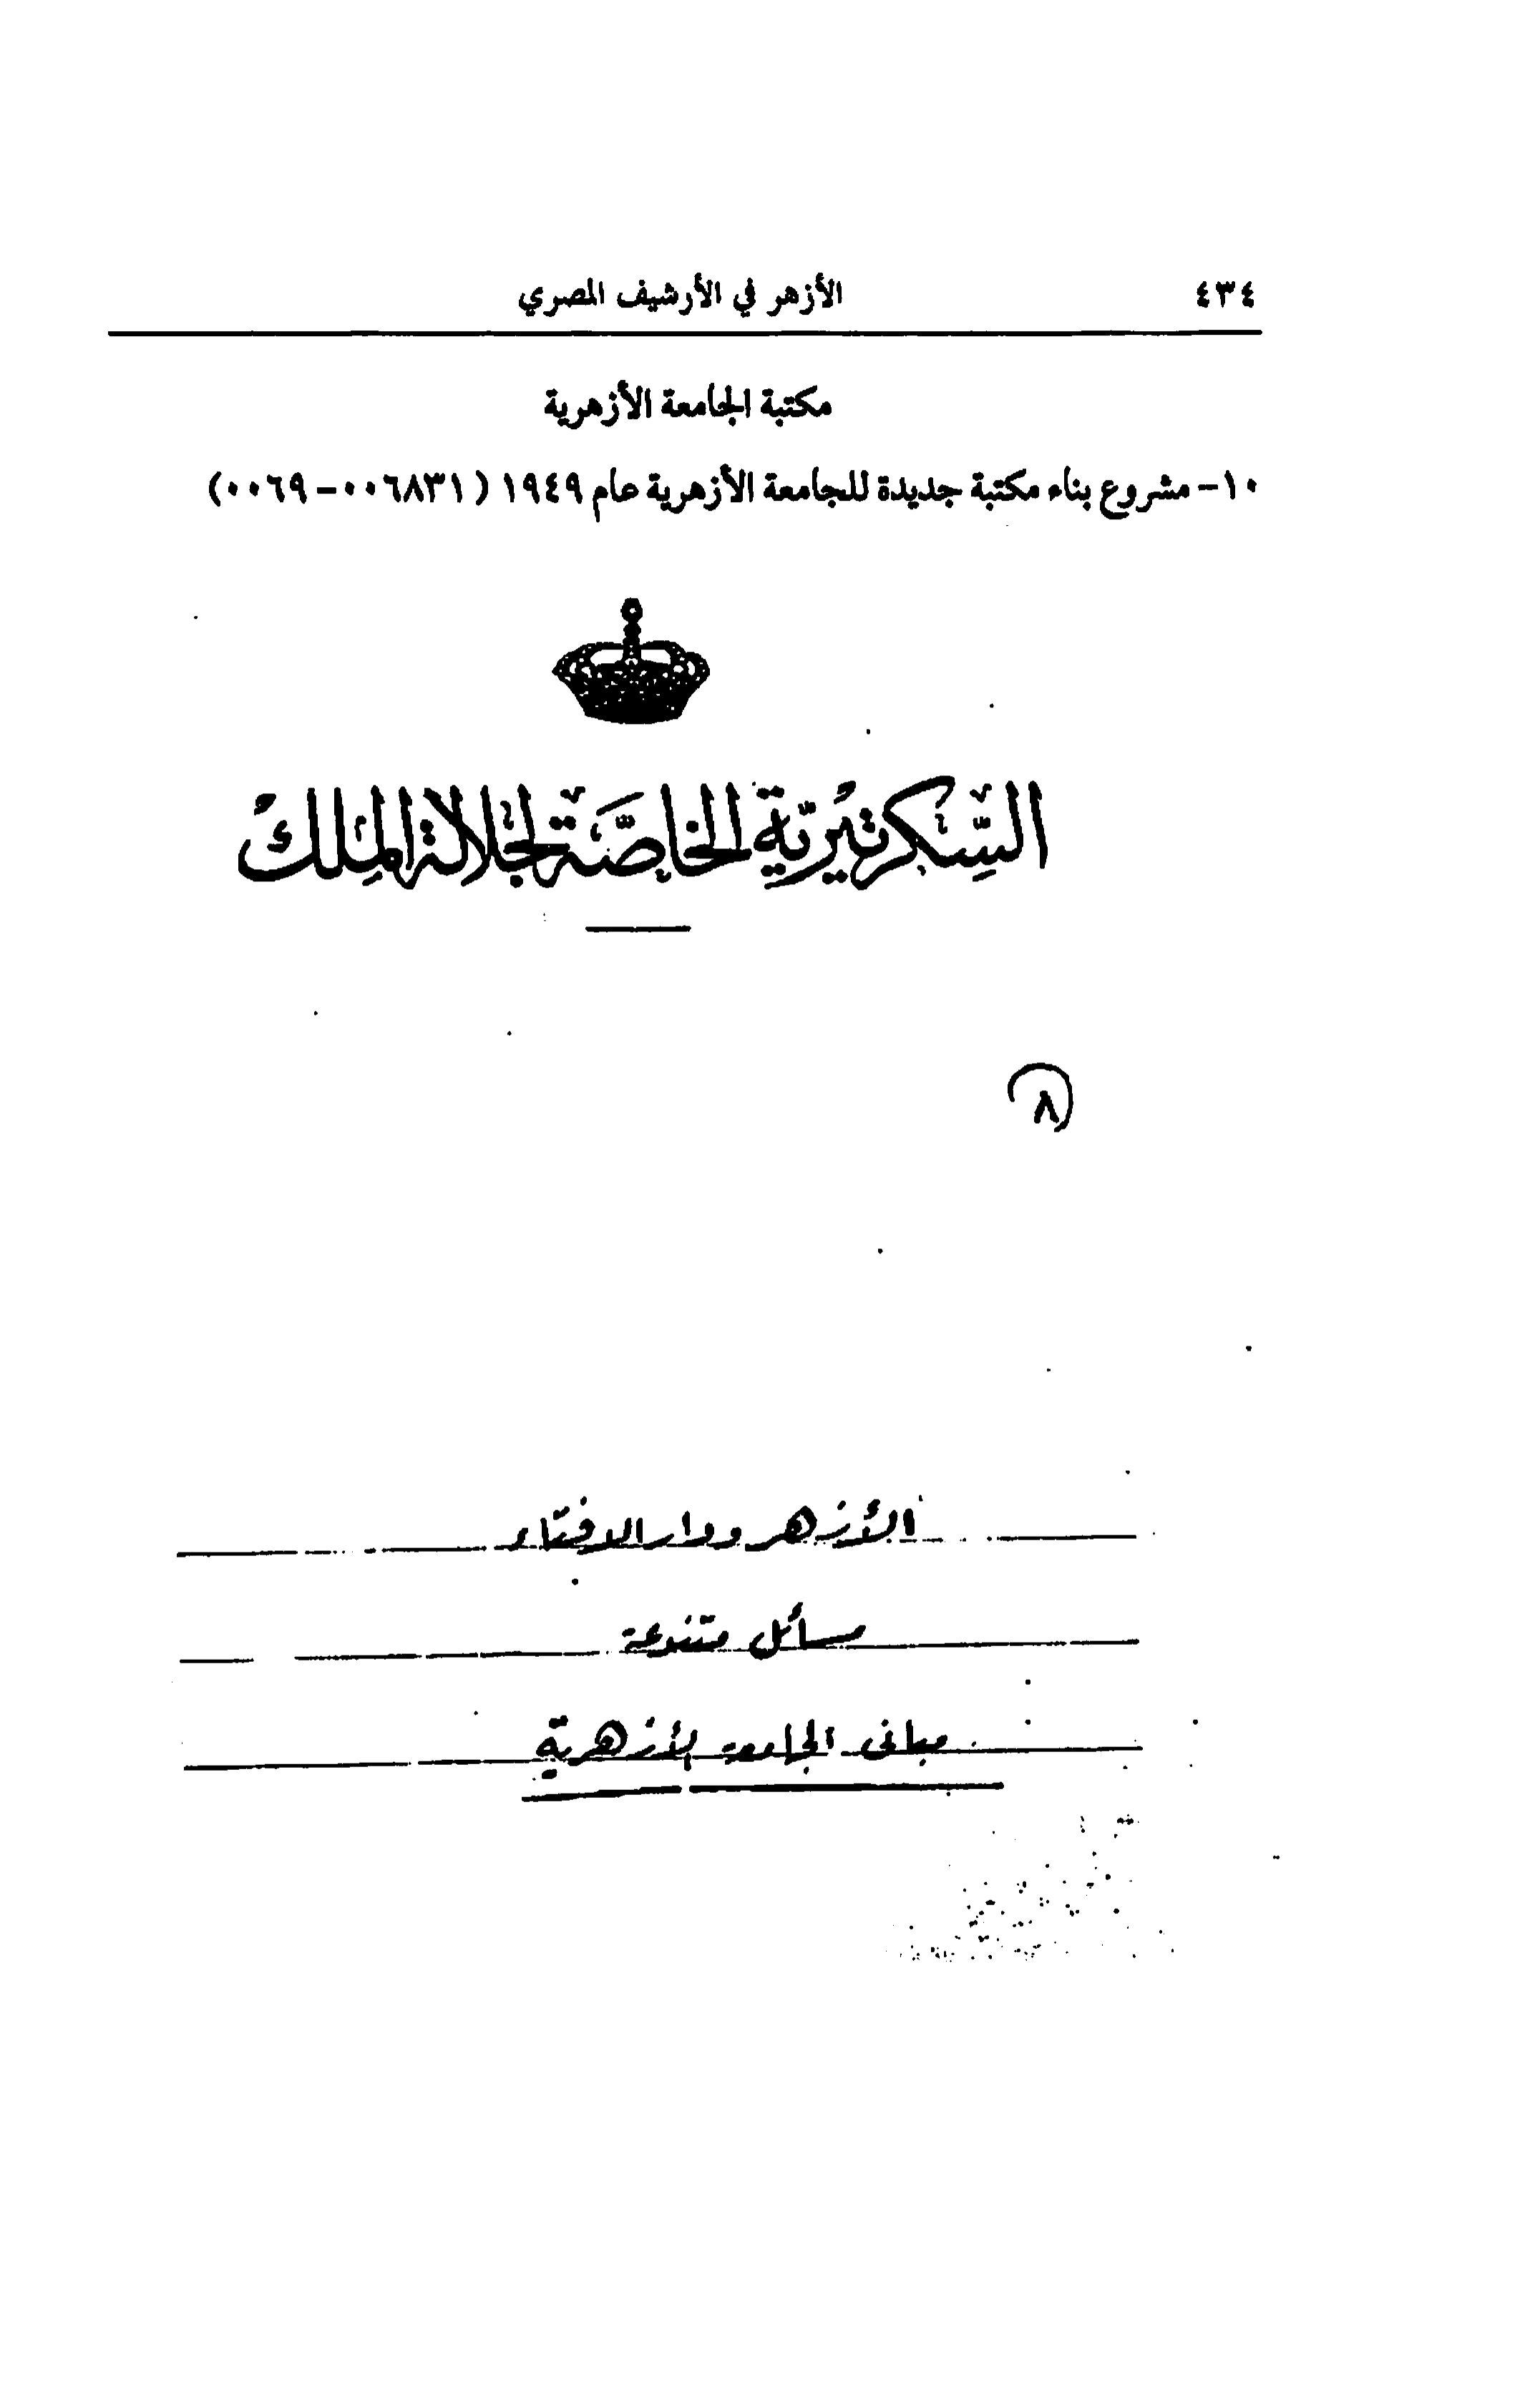 ٤٣٤ الأزهر في الأرشيف المصري
مكتبة الجامعة الأزهرية
١٠- مشروع بناء مكتبة جديدة للجامعة الأزهرية عام ١٩٤٩ (٠٠٦٨٣١-٠٠٦٩)
السكرتيرية الخاصة لجلالة الملك
٨
الأزهر ودار الافتاء
مسائل متنوعة
مبانى الجامعة الأزهرية